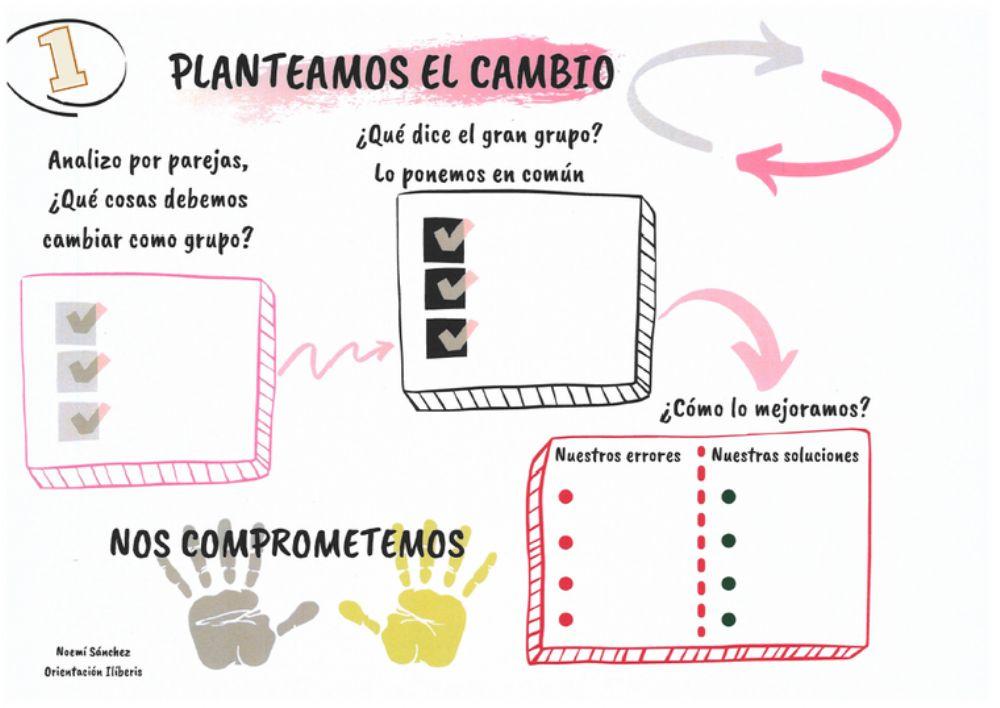 1
PLANTEAMOS EL CAMBIO
Analizo por parejas,
¿Qué cosas debemos
cambiar como grupo?
¿Qué dice el gran grupo?
Lo ponemos en común
¿Cómo lo mejoramos?
Nuestros errores
Nuestras soluciones
NOS COMPROMETEMOS
Noemí Sánchez
Orientación Ilíberis